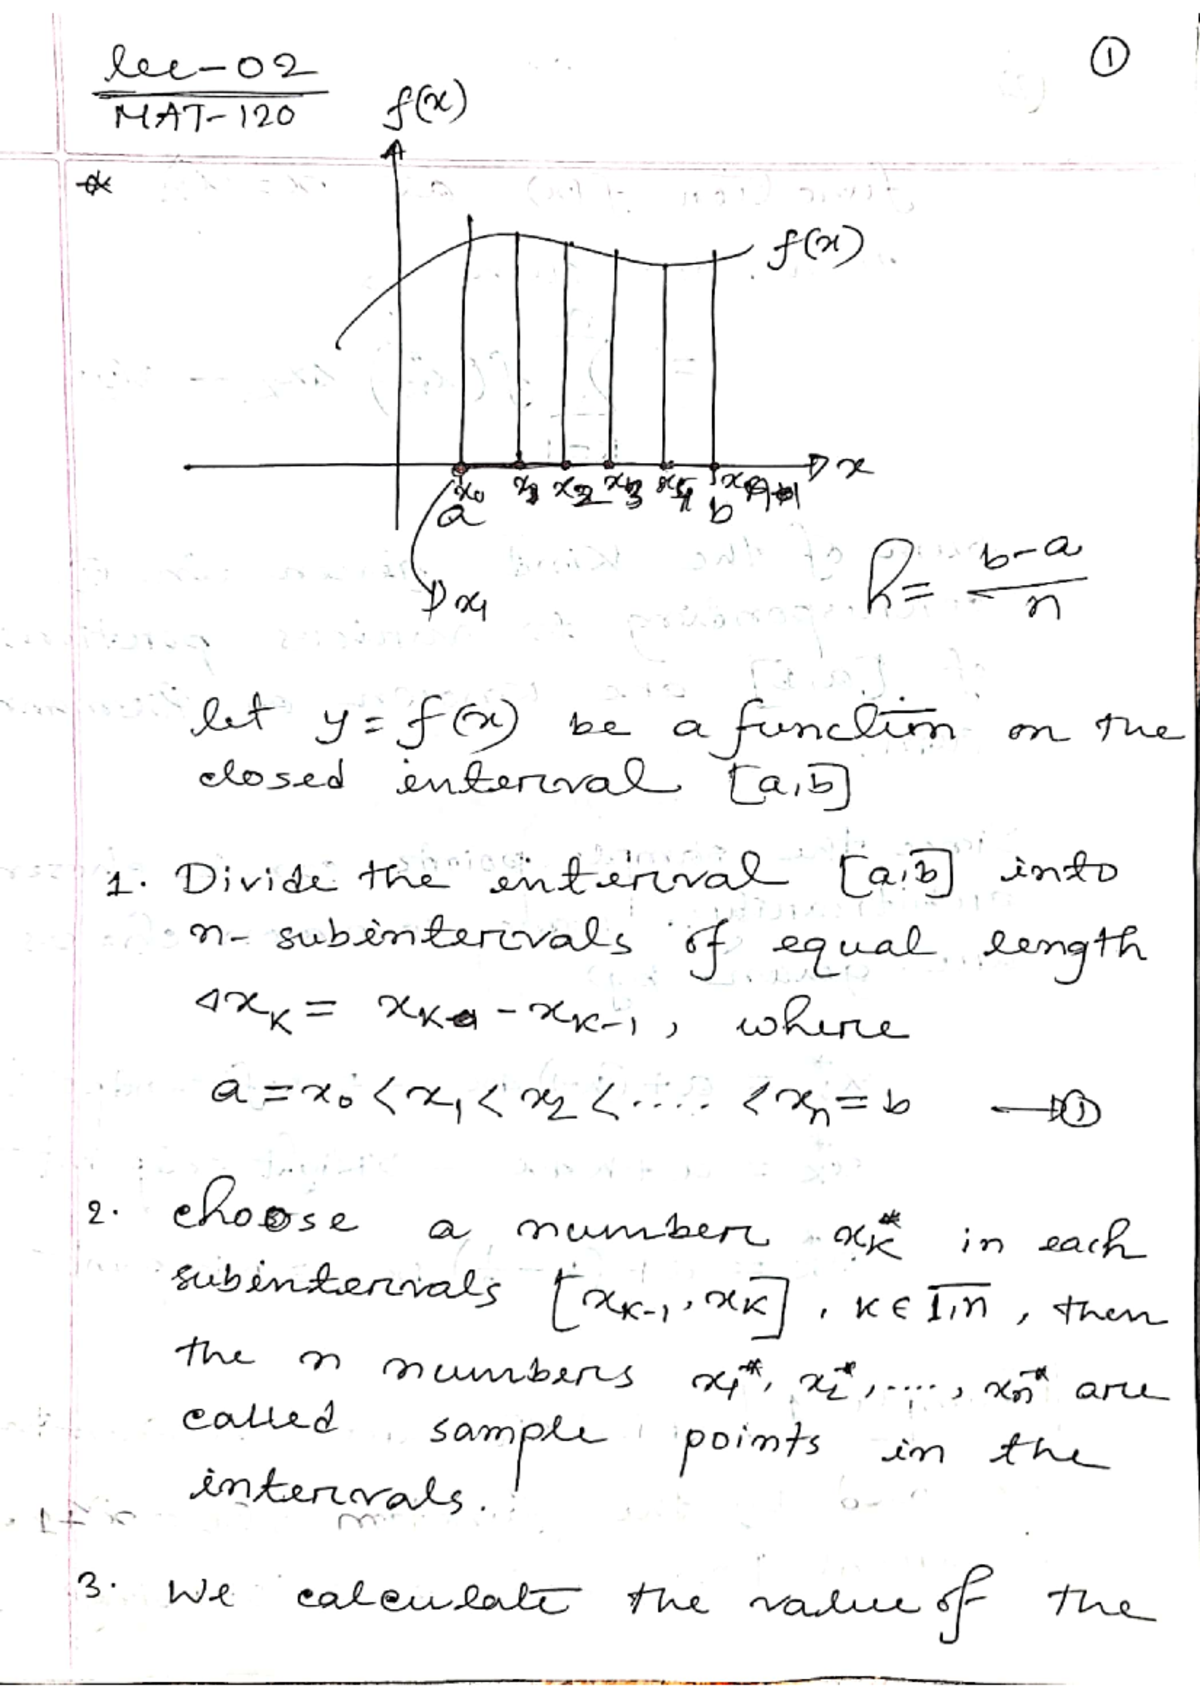 ①
lec-02
MAT-120
f(x)
*
f(x)
x
x₀ x₂ x₃
a b
x₁
h = b-a/n
let y = f(x) be a function on the
closed interval [a,b]
1. Divide the interval [a,b] into
n-subintervals of equal length
Δx_K = x_K - x_K-1, where
a = x₀ < x₁ < x₂ < .... < x_n = b → ①
2. choose a number x_K* in each
subintervals [x_K-1, x_K], K ∈ 1,n, then
the n numbers x₁*, x₂*, ...., x_n* are
called sample points in the
intervals.
3. We calculate the value of the